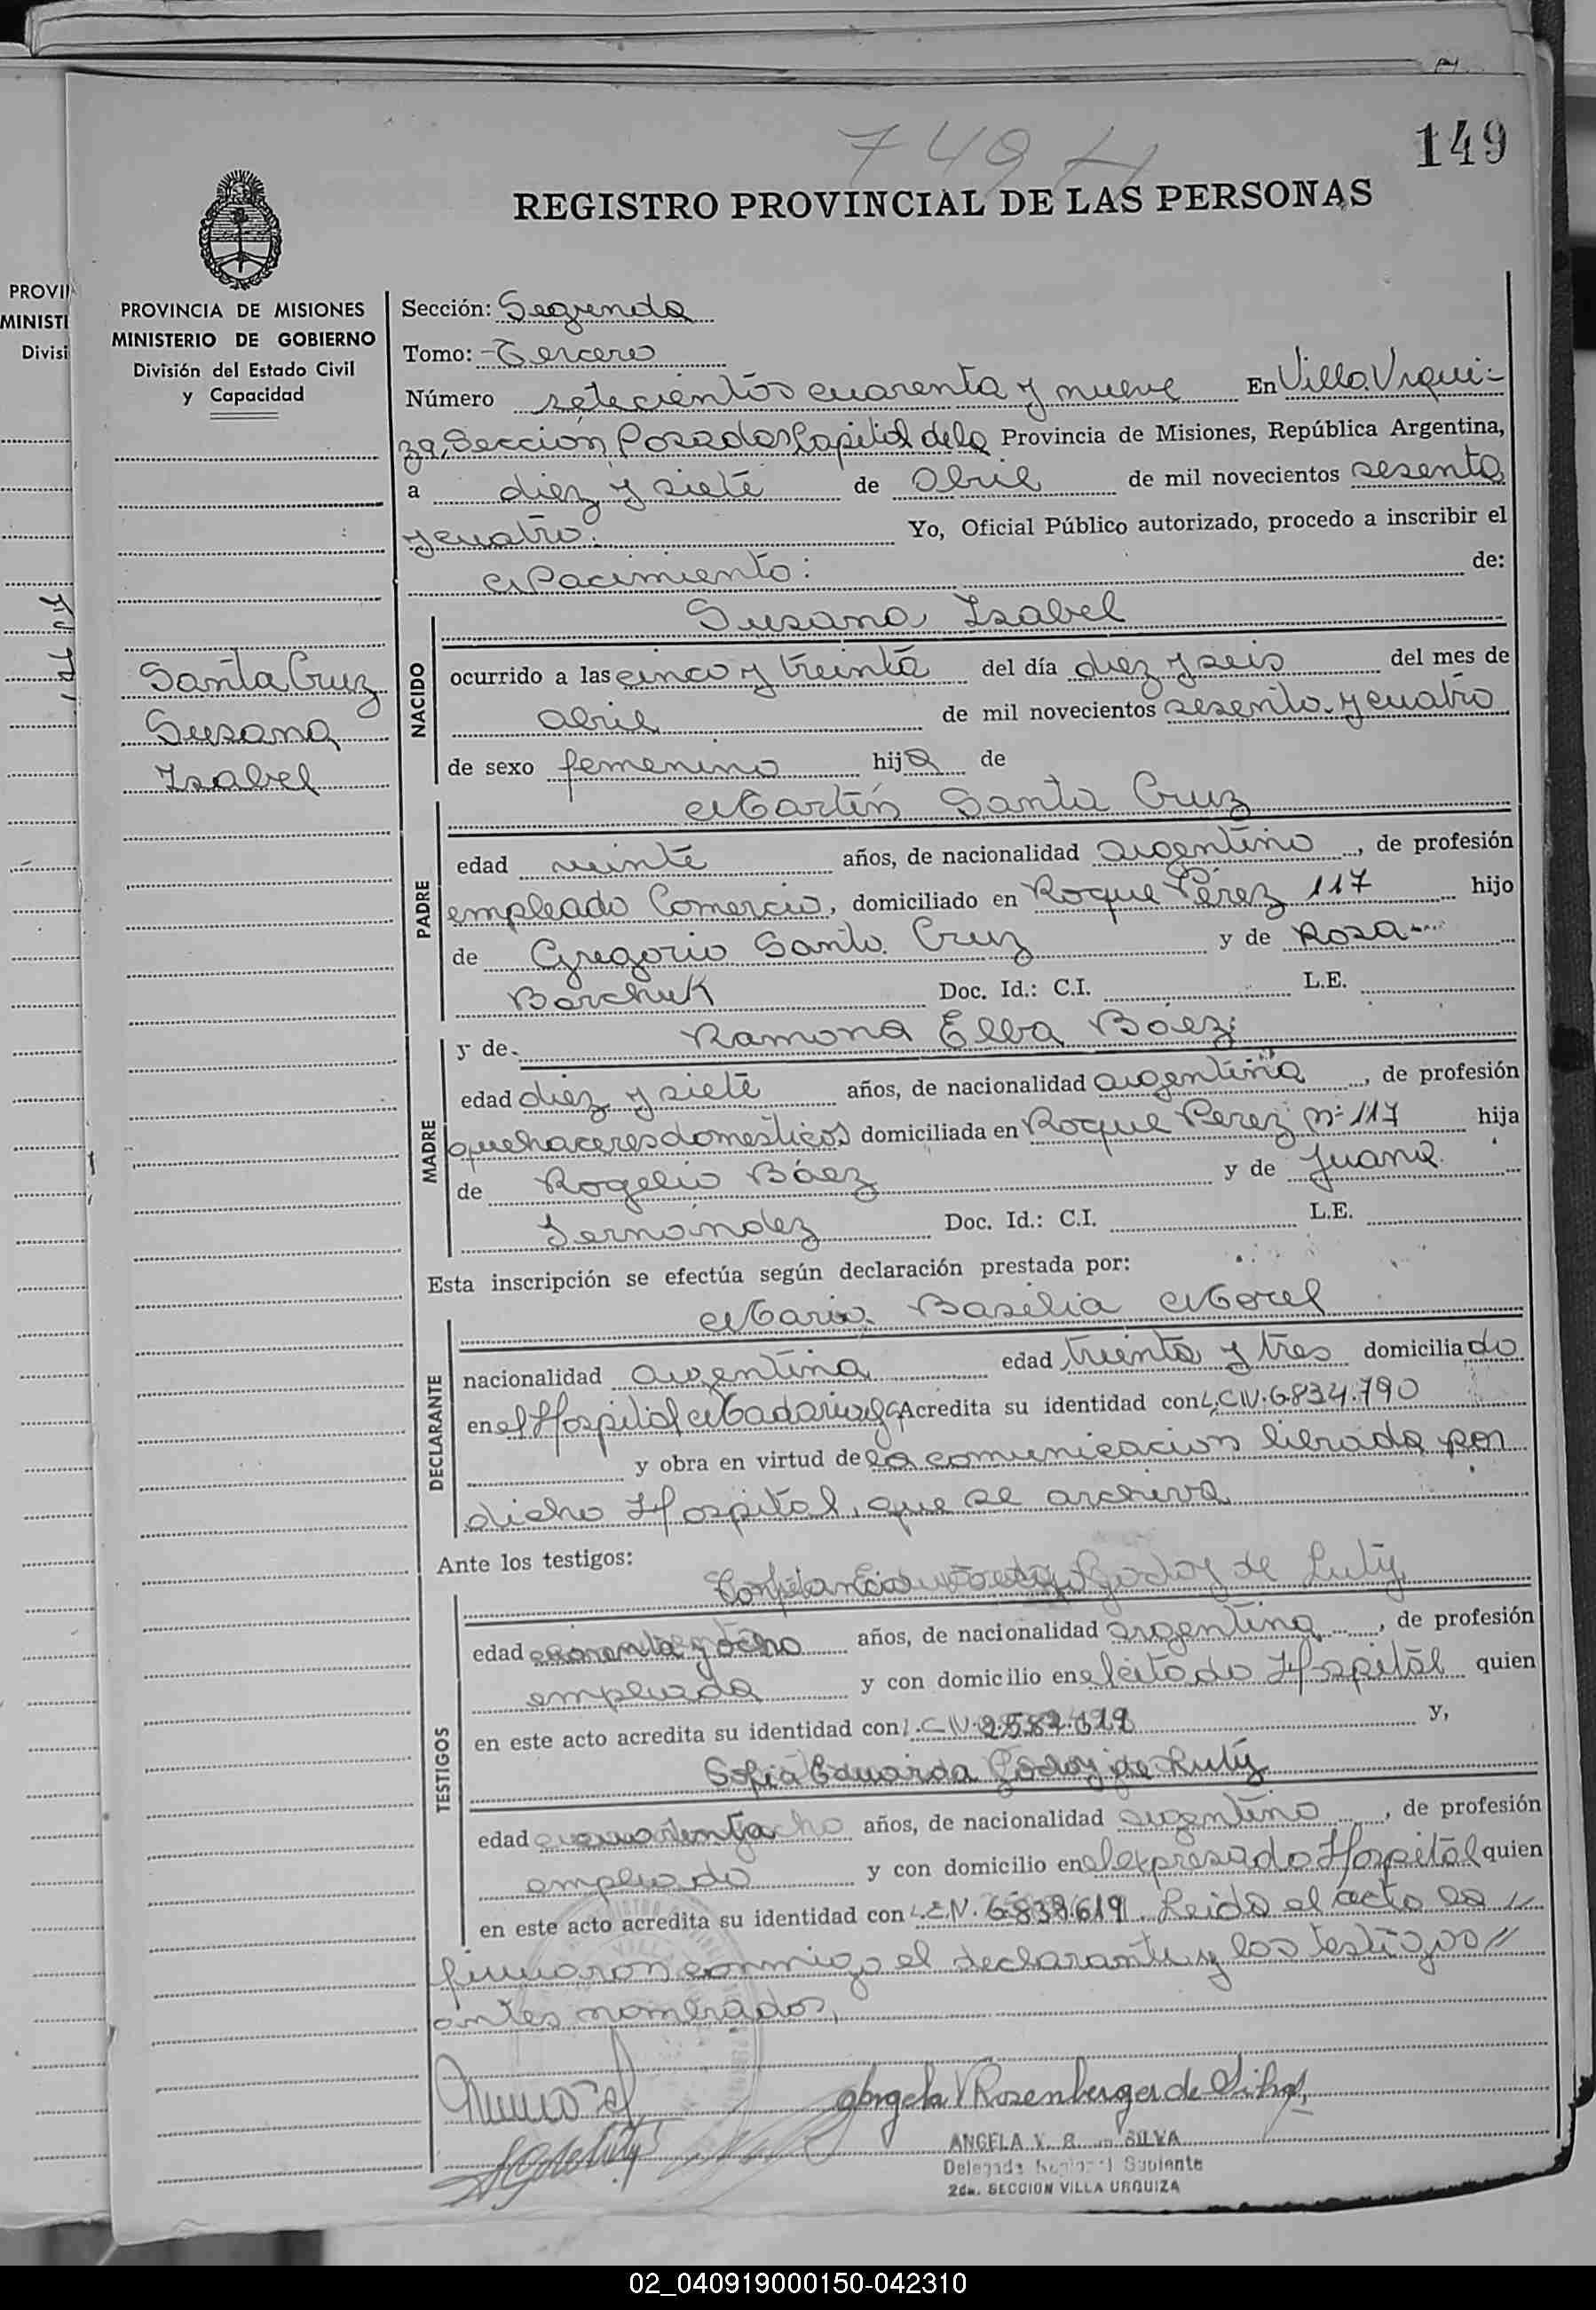 749 H
149
REGISTRO PROVINCIAL DE LAS PERSONAS
PROVINCIA DE MISIONES
MINISTERIO DE GOBIERNO
División del Estado Civil
y Capacidad
Santa Cruz
Susana
Isabel
Sección: Segunda
Tomo: Tercero
Número setecientos cuarenta y nueve En Villa Urqui-
za, Sección Posadas Capital de la Provincia de Misiones, República Argentina,
a diez y siete de Abril de mil novecientos sesenta
y cuatro. Yo, Oficial Público autorizado, procedo a inscribir el
Nacimiento: de:
Susana Isabel
NACIDO
ocurrido a las cinco y treinta del día diez y seis del mes de
abril de mil novecientos sesenta y cuatro
de sexo femenino hija de
Martín Santa Cruz
PADRE
edad veinte años, de nacionalidad argentino, de profesión
empleado Comercio, domiciliado en Roque Pérez 117 hijo
de Gregorio Santa Cruz y de Rosa
Borchuk Doc. Id.: C.I. L.E.
y de Ramona Elba Báez
MADRE
edad diez y siete años, de nacionalidad argentina, de profesión
quehaceres domesticos domiciliada en Roque Perez Nº 117 hija
de Rogelio Báez y de Juana
Fernández Doc. Id.: C.I. L.E.
Esta inscripción se efectúa según declaración prestada por:
Maria Basilia Morel
DECLARANTE
nacionalidad argentina edad treinta y tres domiciliado
en el Hospital Madariaga Acredita su identidad con L.C.N. 6834.790
y obra en virtud de la comunicacion librada por
dicho Hospital, que se archiva
Ante los testigos:
Godoy de Luty
TESTIGOS
edad años, de nacionalidad argentina, de profesión
empleada y con domicilio en el citado Hospital quien
en este acto acredita su identidad con L.C.N. y,
Sofia Eduarda Godoy de Luty
edad años, de nacionalidad argentino, de profesión
empleado y con domicilio en el expresado Hospital quien
en este acto acredita su identidad con L.E.N. Leida el acta la
firmaron conmigo el declarante y los testigos
antes nombrados,
Angela V Rosenberger de Silva
ANGELA V. R. SILVA
Delegada Regional Suplente
2da. SECCION VILLA URQUIZA
02_040919000150-042310